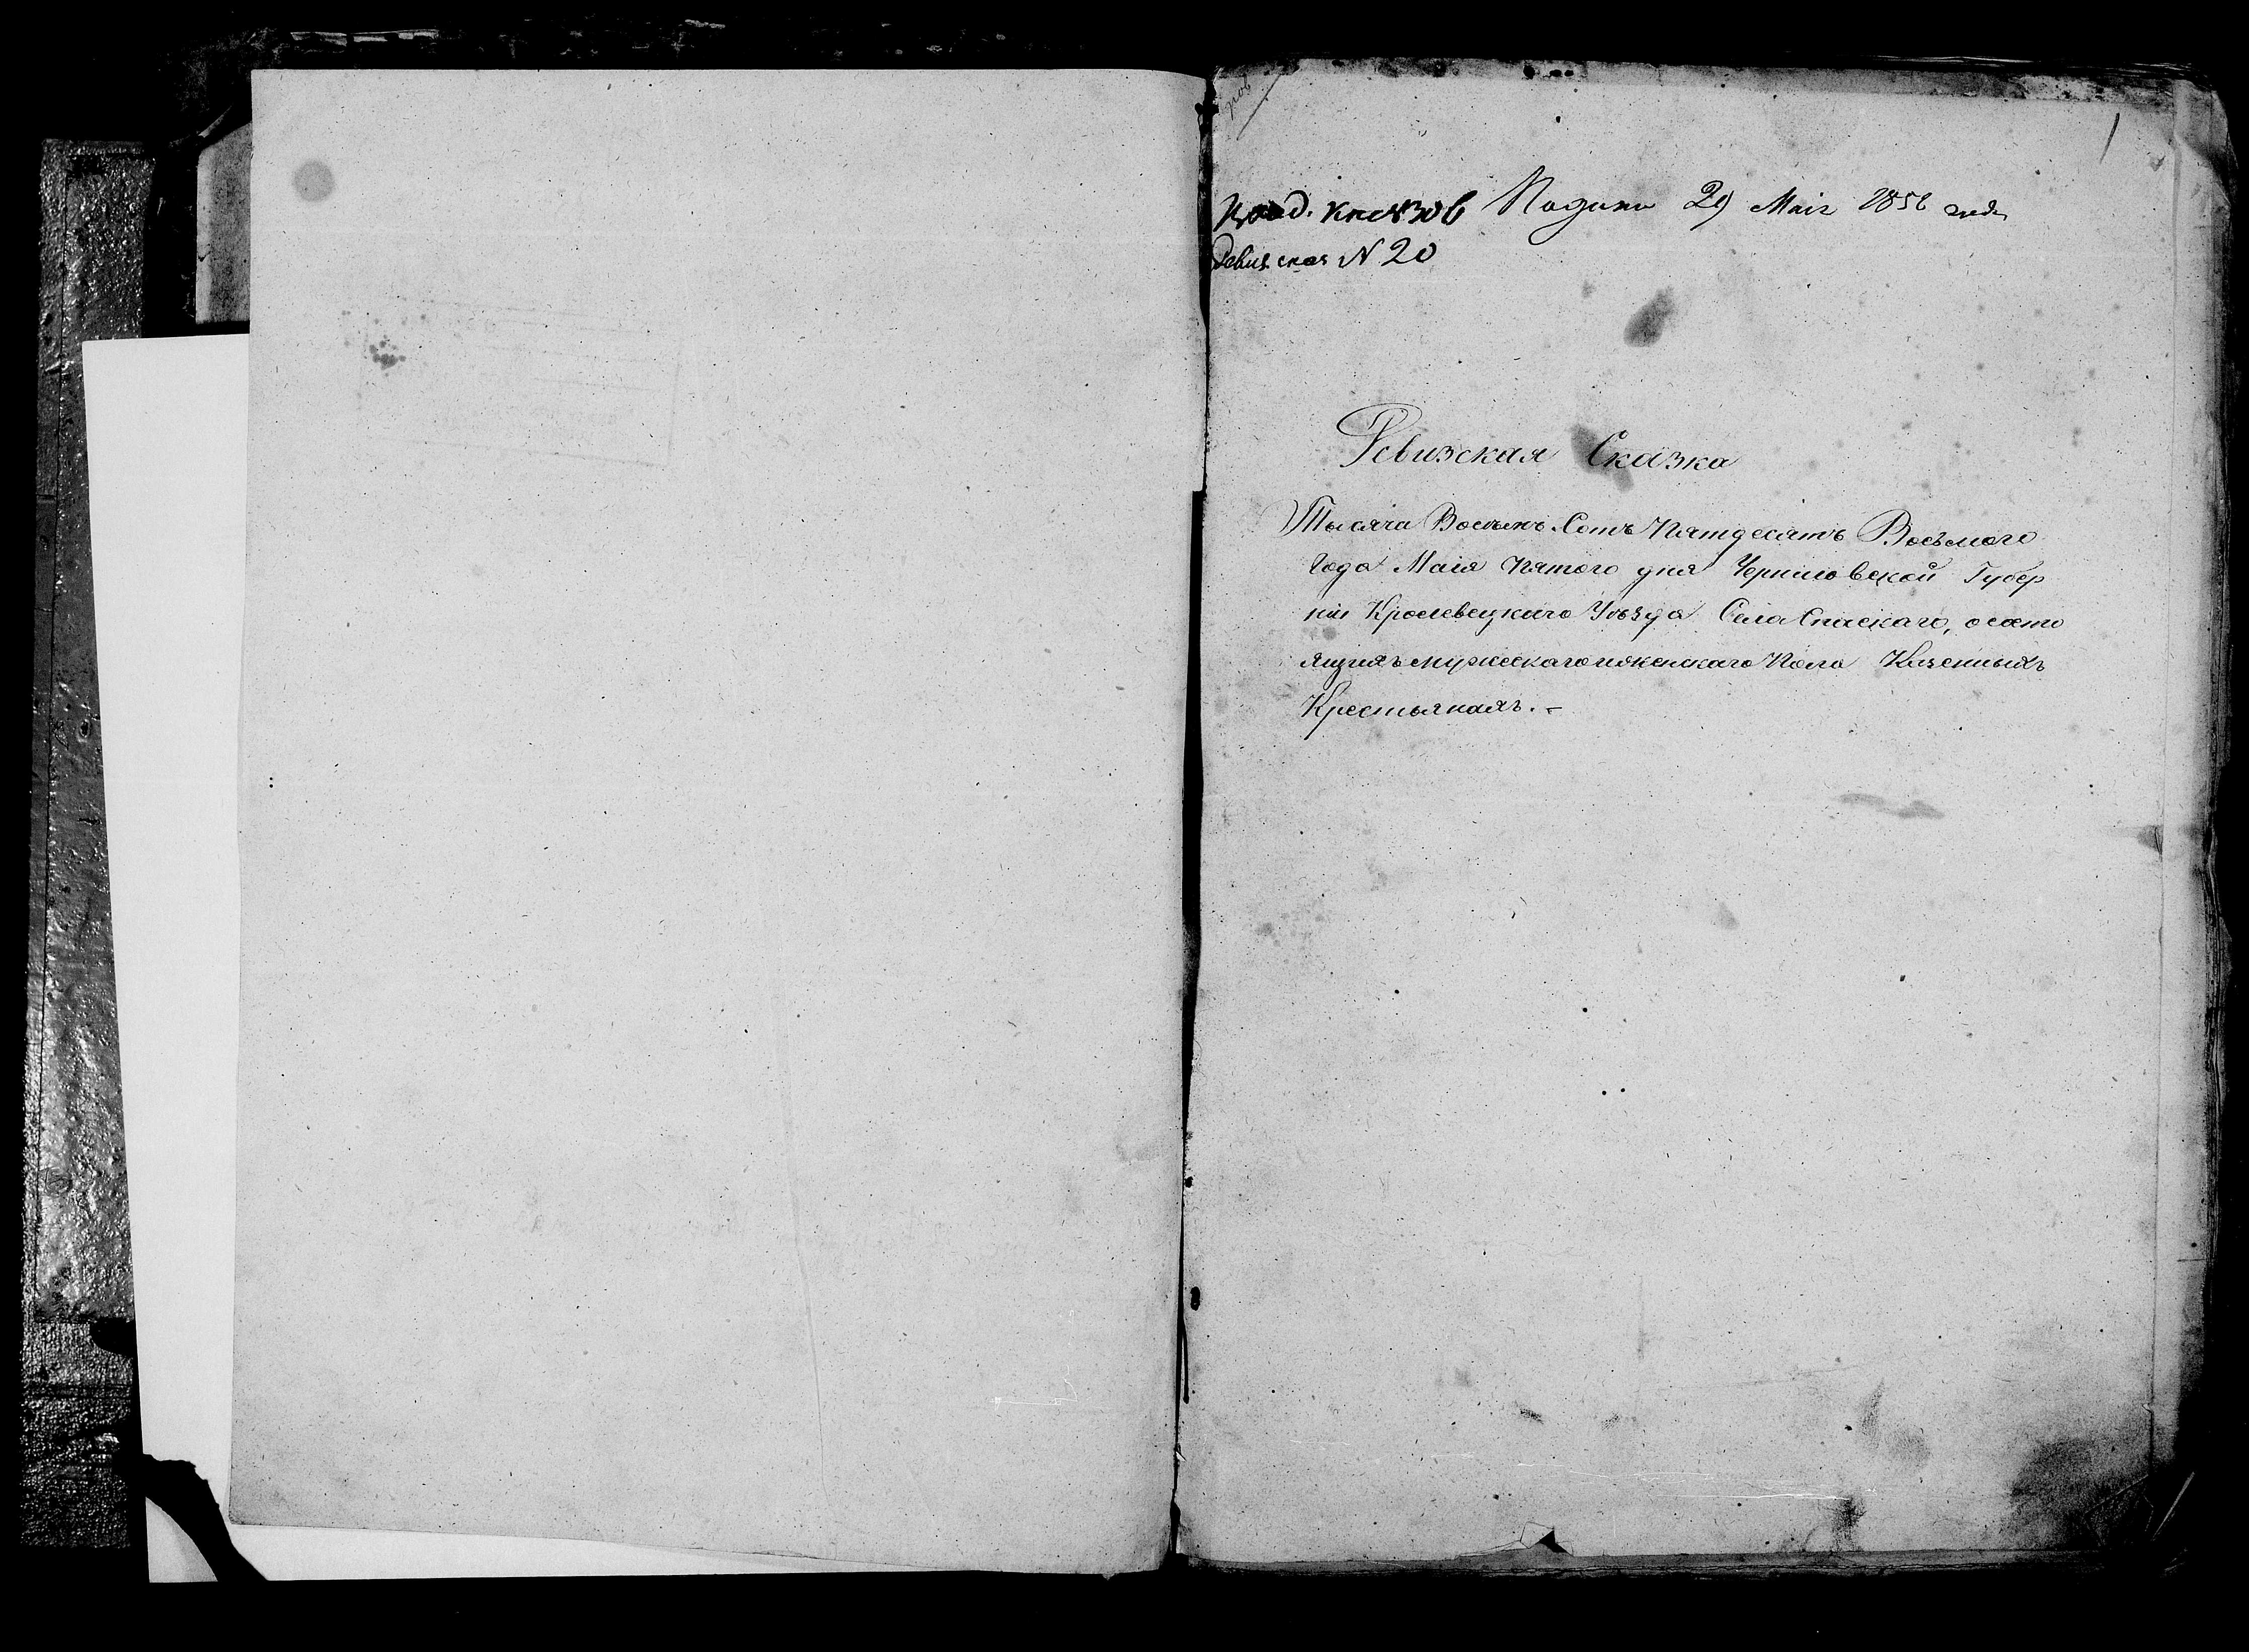 1
Подана 29 Маія 1858 года
№ 20
Ревизская Сказка
Тысяча Восемь Сотъ Пятдесятъ Восьмого
Года Маія Пятого дня Черниговской Губер
ніи Кролевецкаго Уѣзда Села Спаскаго, о состо
ящихъ мужескаго и женскаго Пола Казенныхъ
Крестьянахъ. –